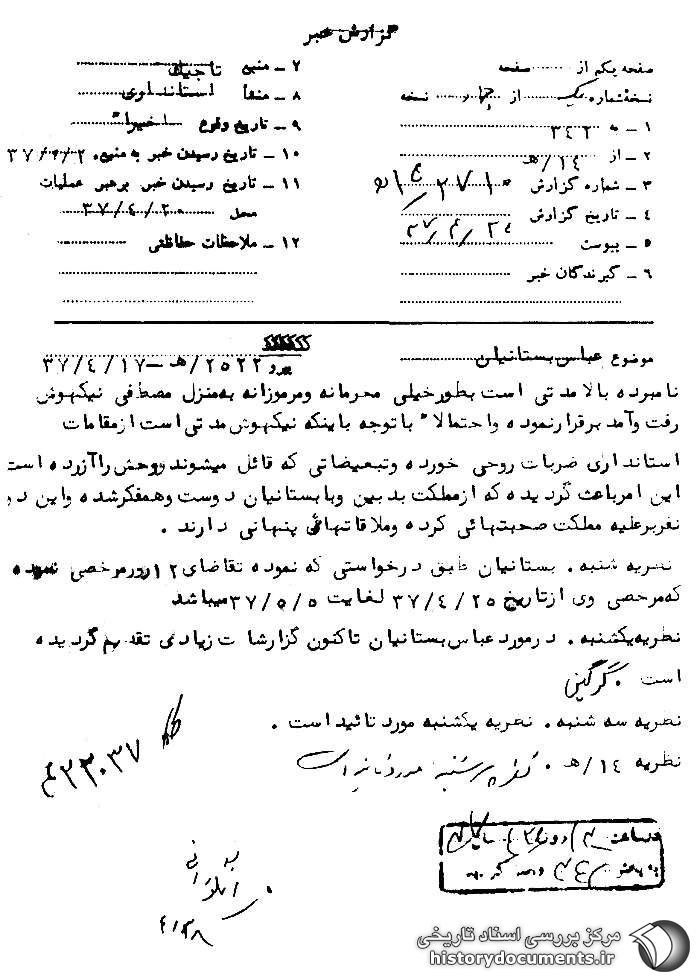 گزارش خبر
صفحه یکم از ........ صفحه
نسخه شماره یک از چهار نسخه
۱ ـ به ۳۴۲
۲ ـ از ۱۴/هـ
۳ ـ شماره گزارش
۴ ـ تاریخ گزارش
۵ ـ پیوست
۶ ـ گیرندگان خبر
۷ ـ منبع تاجیک
۸ ـ منشأ استانداری
۹ ـ تاریخ وقوع اخیراً
۱۰ ـ تاریخ رسیدن خبر به منبع
۱۱ ـ تاریخ رسیدن خبر برهبر عملیات
محل ۳۷/۴/۲۰
۱۲ ـ ملاحظات حفاظتی
موضوع عباس بستانیان
پیرو ۲۵۲۲/هـ - ۳۷/۴/۱۷
نامبرده بالا مدتی است بطور خیلی محرمانه ومرموزانه به منزل مصطفی نیکهوش
رفت وآمد برقرار نموده واحتمالاً با توجه باینکه نیکهوش مدتی است از مقامات
استانداری ضربات روحی خورده وتبعیضاتی که قائل میشوند روحش راآزرده است
این امر باعث گردیده که از مملکت بدبین وبا بستانیان دوست وهمفکر شده واین دو
نفر برعلیه مملکت صحبتهائی کرده وملاقاتهائی پنهانی دارند .
نظریه شنبه . بستانیان طبق درخواستی که نموده تقاضای ۱۲ روز مرخصی نموده
که مرخصی وی از تاریخ ۳۷/۴/۲۵ لغایت ۳۷/۵/۵ میباشد
نظریه یکشنبه . در مورد عباس بستانیان تاکنون گزارشات زیادی تقدیم گردیده
است . گرگین
نظریه سه شنبه . نظریه یکشنبه مورد تائید است .
نظریه ۱۴/هـ . نظریه سه شنبه مورد تائید است
مرکز بررسی اسناد تاریخی
historydocuments.ir